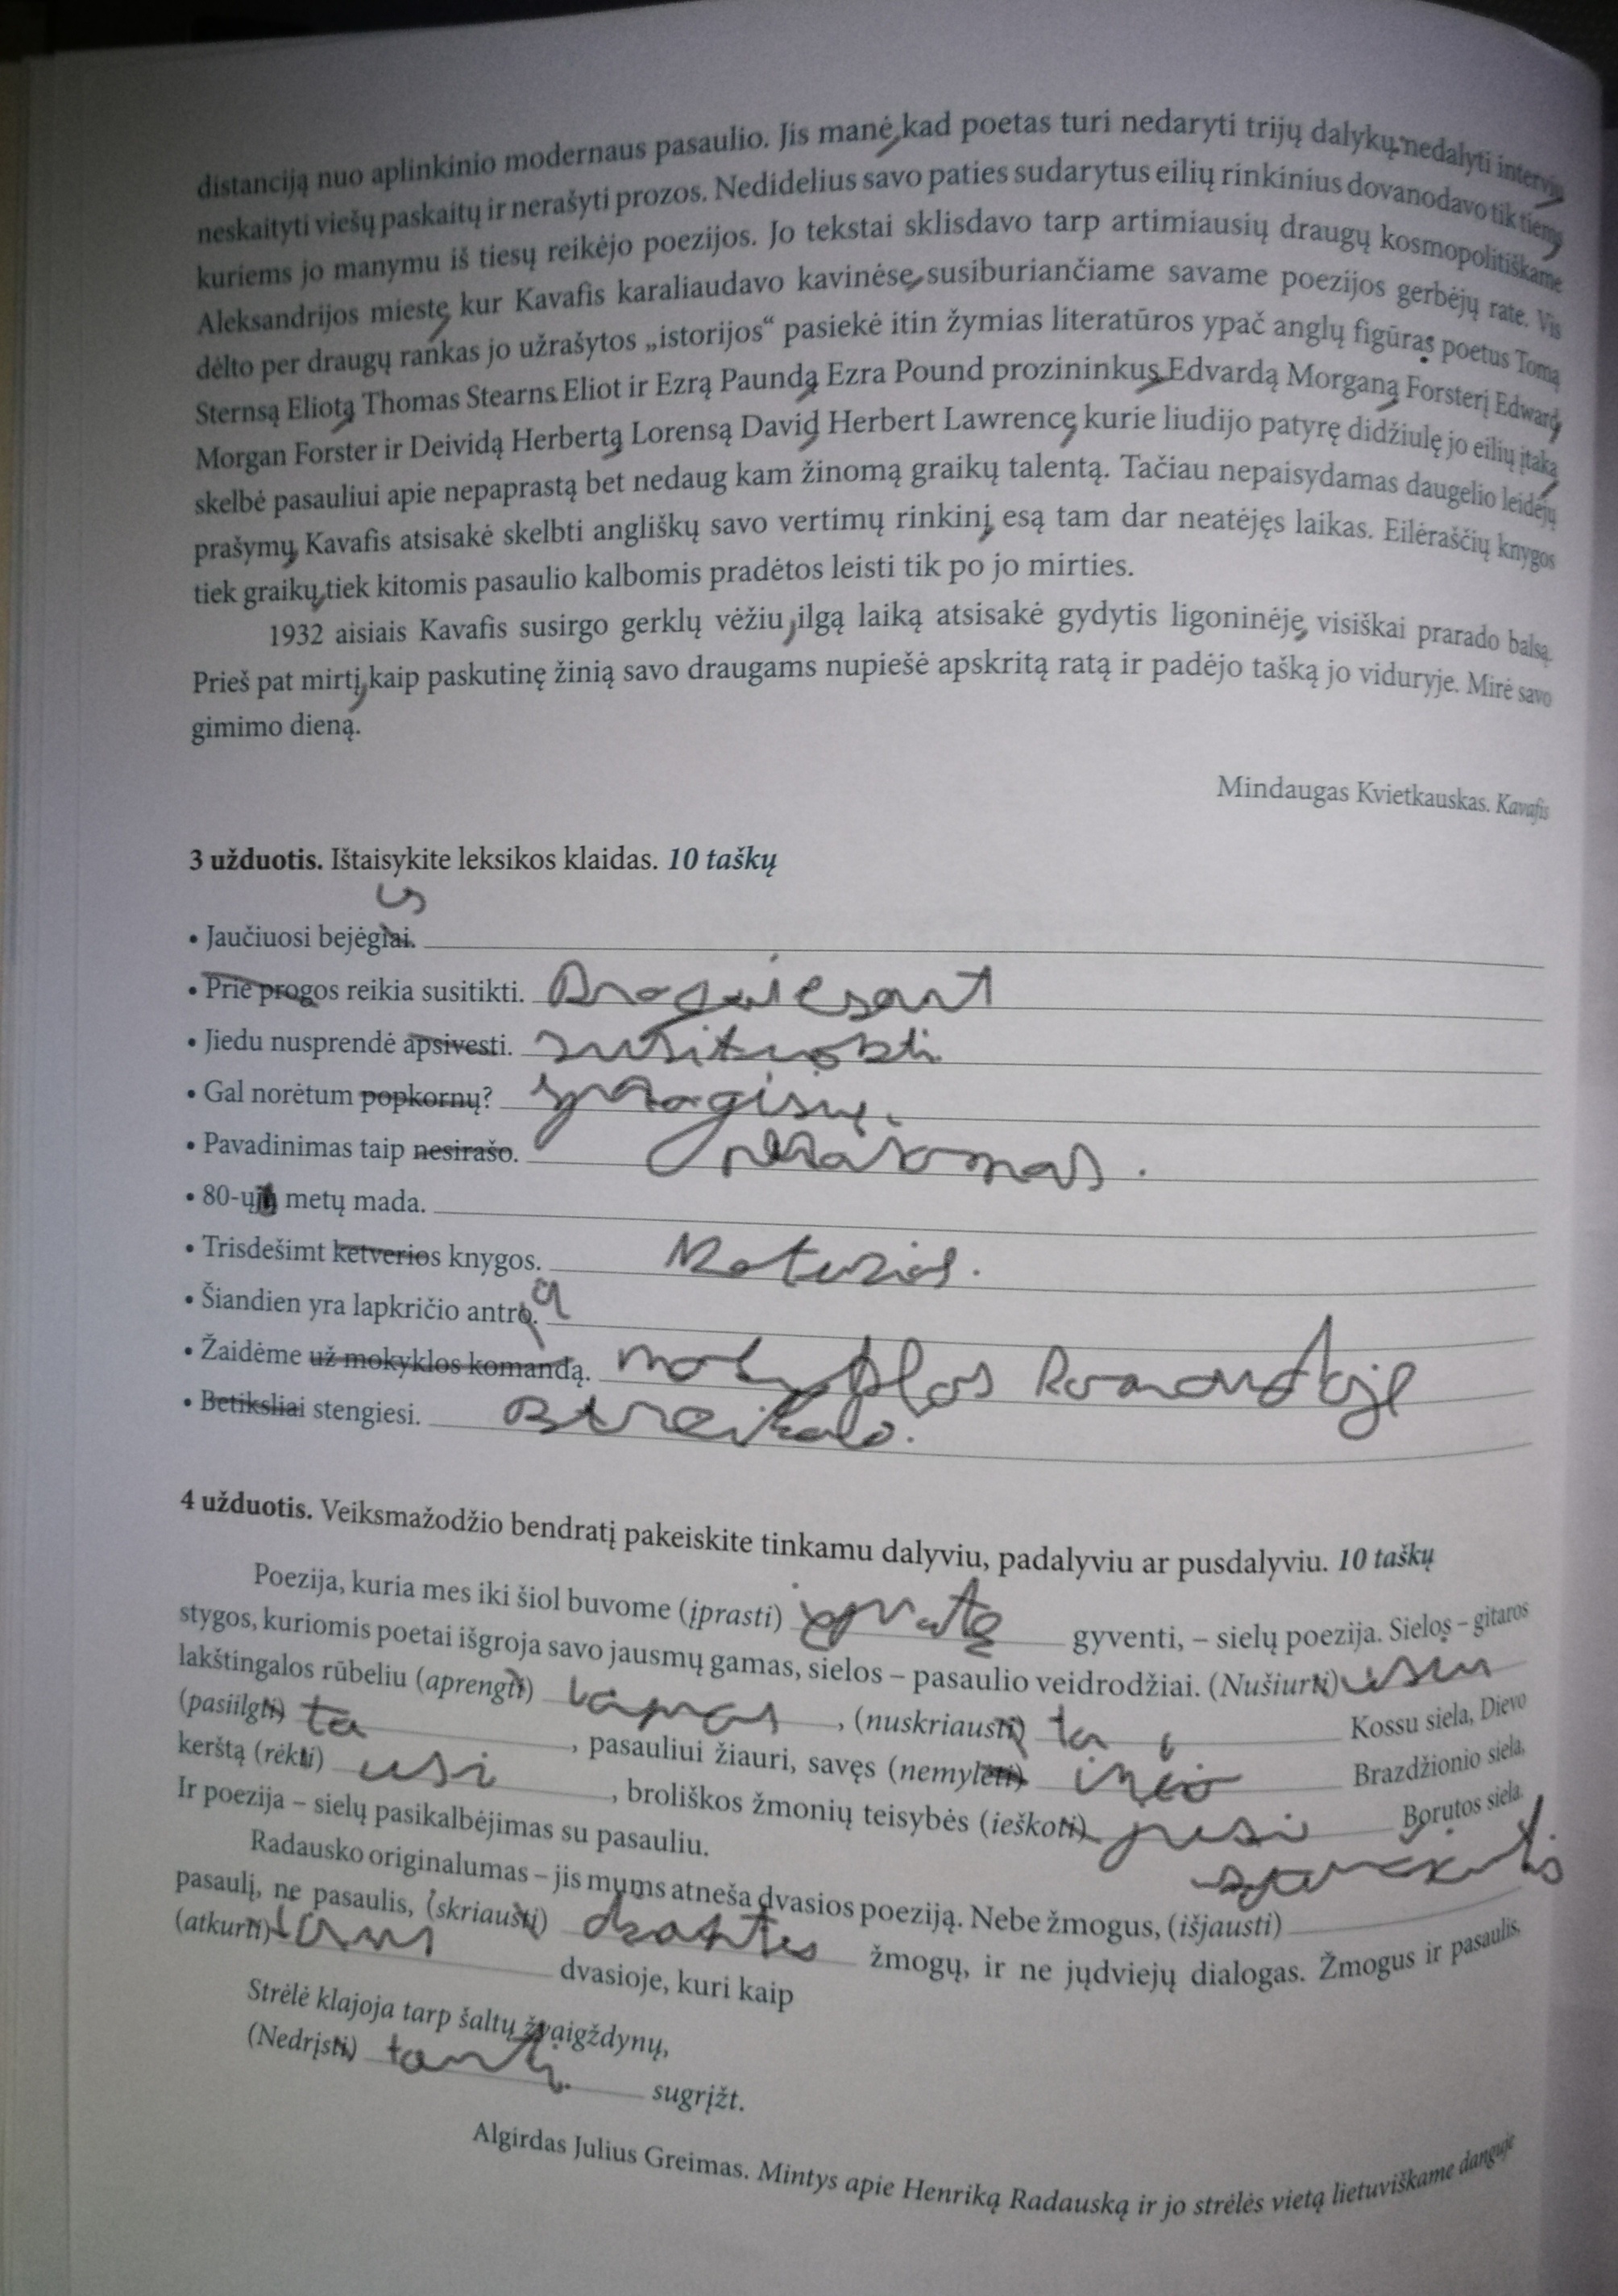 distanciją nuo aplinkinio modernaus pasaulio. Jis manė, kad poetas turi nedaryti trijų dalykų: nedalyti interviu,
neskaityti viešų paskaitų ir nerašyti prozos. Nedidelius savo paties sudarytus eilių rinkinius dovanodavo tik tiems,
kuriems jo manymu iš tiesų reikėjo poezijos. Jo tekstai sklisdavo tarp artimiausių draugų kosmopolitiškame
Aleksandrijos mieste, kur Kavafis karaliaudavo kavinėse, susiburiančiame savame poezijos gerbėjų rate. Vis
dėlto per draugų rankas jo užrašytos „istorijos“ pasiekė itin žymias literatūros ypač anglų figūras: poetus Tomą
Sternsą Eliotą, Thomas Stearns Eliot ir Ezrą Paundą, Ezra Pound prozininkus, Edvardą Morganą, Forsterį Edward,
Morgan Forster ir Deividą Herbertą, Lorensą David, Herbert Lawrence, kurie liudijo patyrę didžiulę jo eilių įtaką,
skelbė pasauliui apie nepaprastą bet nedaug kam žinomą graikų talentą. Tačiau nepaisydamas daugelio leidėjų
prašymų, Kavafis atsisakė skelbti angliškų savo vertimų rinkinį, esą tam dar neatėjęs laikas. Eilėraščių knygos
tiek graikų, tiek kitomis pasaulio kalbomis pradėtos leisti tik po jo mirties.
1932 aisiais Kavafis susirgo gerklų vėžiu, ilgą laiką atsisakė gydytis ligoninėje, visiškai prarado balsą.
Prieš pat mirtį, kaip paskutinę žinią savo draugams nupiešė apskritą ratą ir padėjo tašką jo viduryje. Mirė savo
gimimo dieną.
Mindaugas Kvietkauskas. Kavafis
3 užduotis. Ištaisykite leksikos klaidas. 10 taškų
• Jaučiuosi bejėgiai. is
• Prie progos reikia susitikti. Progai esant
• Jiedu nusprendė apsivesti. susituokti
• Gal norėtum popkornų? spragėsių.
• Pavadinimas taip nesirašo. nerašomas.
• 80-ųjų metų mada.
• Trisdešimt ketverios knygos. Keturios.
• Šiandien yra lapkričio antro. a
• Žaidėme už mokyklos komandą. mokyklos komandoje
• Betiksliai stengiesi. Be reikalo.
4 užduotis. Veiksmažodžio bendratį pakeiskite tinkamu dalyviu, padalyviu ar pusdalyviu. 10 taškų
Poezija, kuria mes iki šiol buvome (įprasti) įpratę gyventi, – sielų poezija. Sielos – gitaros
stygos, kuriomis poetai išgroja savo jausmų gamas, sielos – pasaulio veidrodžiai. (Nušiurti)
lakštingalos rūbeliu (aprengti) , (nuskriausti) ta Kossu siela, Dievo
(pasiilgti) ta , pasauliui žiauri, savęs (nemylėti) Brazdžionio siela,
kerštą (rėkti) usi , broliškos žmonių teisybės (ieškoti) Borutos siela.
Ir poezija – sielų pasikalbėjimas su pasauliu.
Radausko originalumas – jis mums atneša dvasios poeziją. Nebe žmogus, (išjausti)
pasaulį, ne pasaulis, (skriausti) žmogų, ir ne jųdviejų dialogas. Žmogus ir pasaulis,
(atkurti) dvasioje, kuri kaip
Strėlė klajoja tarp šaltų žvaigždynų,
(Nedrįsti) sugrįžt.
Algirdas Julius Greimas. Mintys apie Henriką Radauską ir jo strėlės vietą lietuviškame danguje